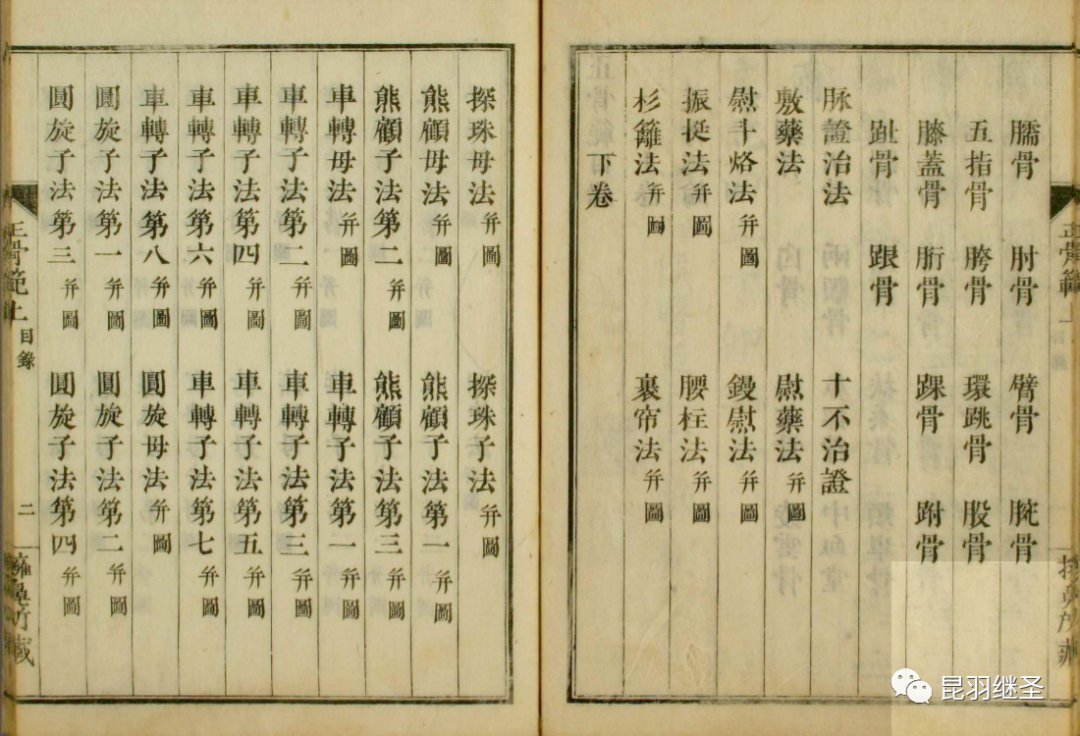 臑骨 肘骨 臂骨 腕骨
五指骨 胯骨 環跳骨 股骨
膝蓋骨 䯒骨 踝骨 跗骨
趾骨 跟骨
脉證治法 十不治證
敷藥法 熨藥法 幷圖
熨斗烙法 幷圖 鏝熨法 幷圖
振挺法 幷圖 腰柱法 幷圖
杉籬法 幷圖 裹帘法 幷圖
下卷
探珠母法 幷圖 探珠子法 幷圖
熊顧母法 幷圖 熊顧子法第一 幷圖
熊顧子法第二 幷圖 熊顧子法第三 幷圖
車轉母法 幷圖 車轉子法第一 幷圖
車轉子法第二 幷圖 車轉子法第三 幷圖
車轉子法第四 幷圖 車轉子法第五 幷圖
車轉子法第六 幷圖 車轉子法第七 幷圖
車轉子法第八 幷圖 圓旋母法 幷圖
圓旋子法第一 幷圖 圓旋子法第二 幷圖
圓旋子法第三 幷圖 圓旋子法第四 幷圖
正骨範上 目錄 二
昆羽继圣